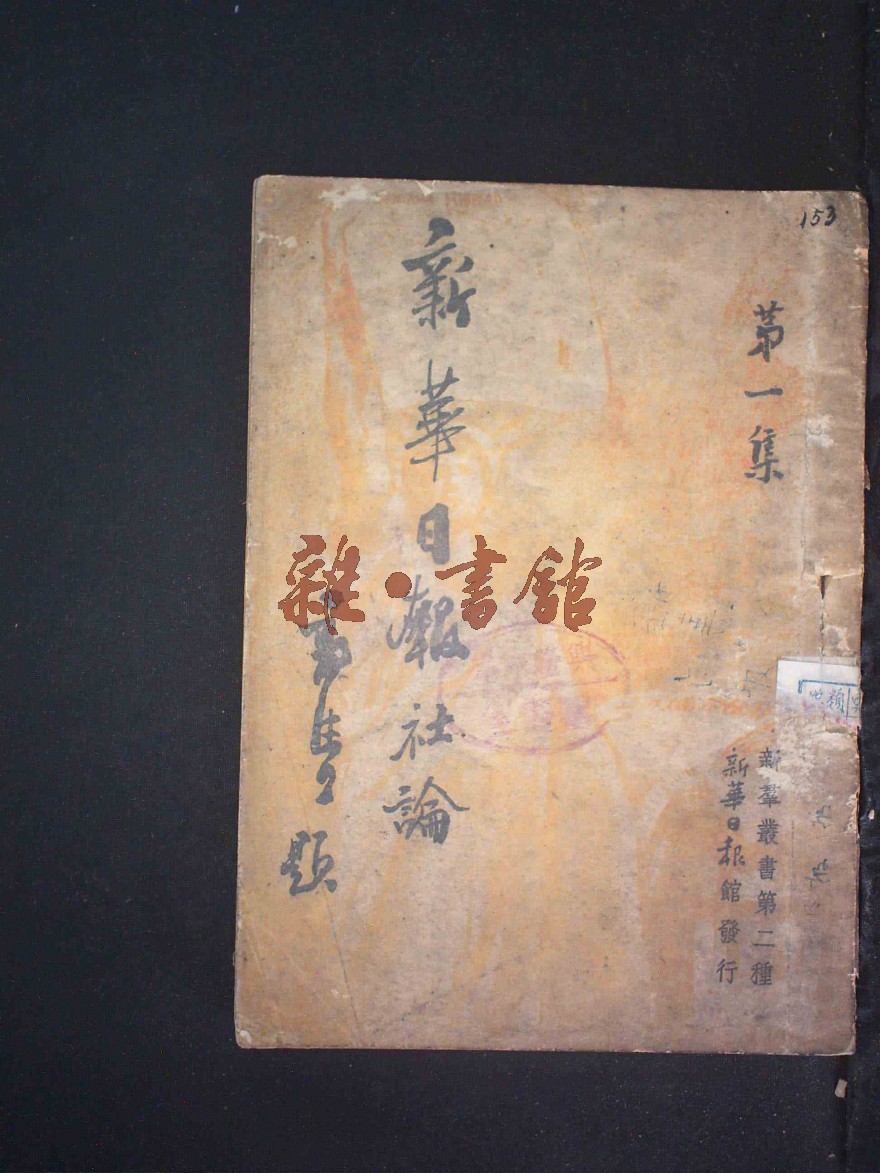 153
第一集
新華日報社論
題
新羣叢書第二種
新華日报館發行
雜·書館
類